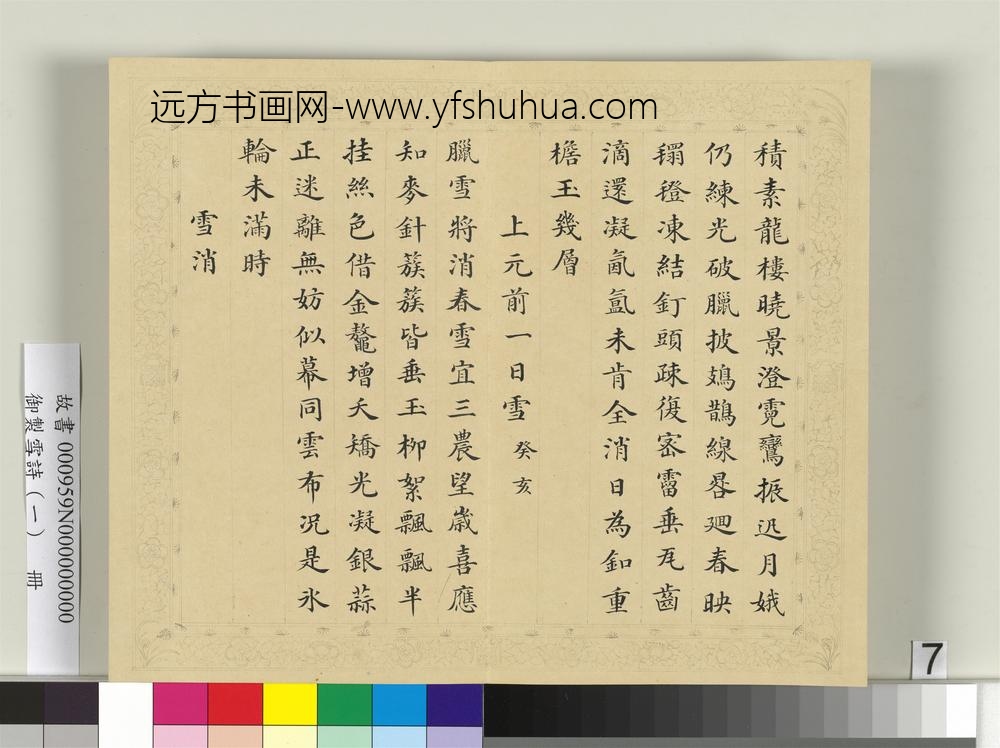 远方书画网-www.yfshuhua.com
積素龍樓曉景澄霓鸞振迅月娥
仍練光破臘披鳷鵲線晷廻春映
䍁䍜凍結釘頭疎復密霤垂瓦齒
滴還凝氤氳未肯全消日為釦重
檐玉幾層
上元前一日雪 癸亥
臘雪將消春雪宜三農望歲喜應
知麥針蔟蔟皆垂玉柳絮飄飄半
挂絲色借金鼇增夭矯光凝銀蒜
正迷離無妨似幕同雲布况是氷
輪未滿時
雪消
故書 000959N000000000
御製雪詩（一） 冊
7